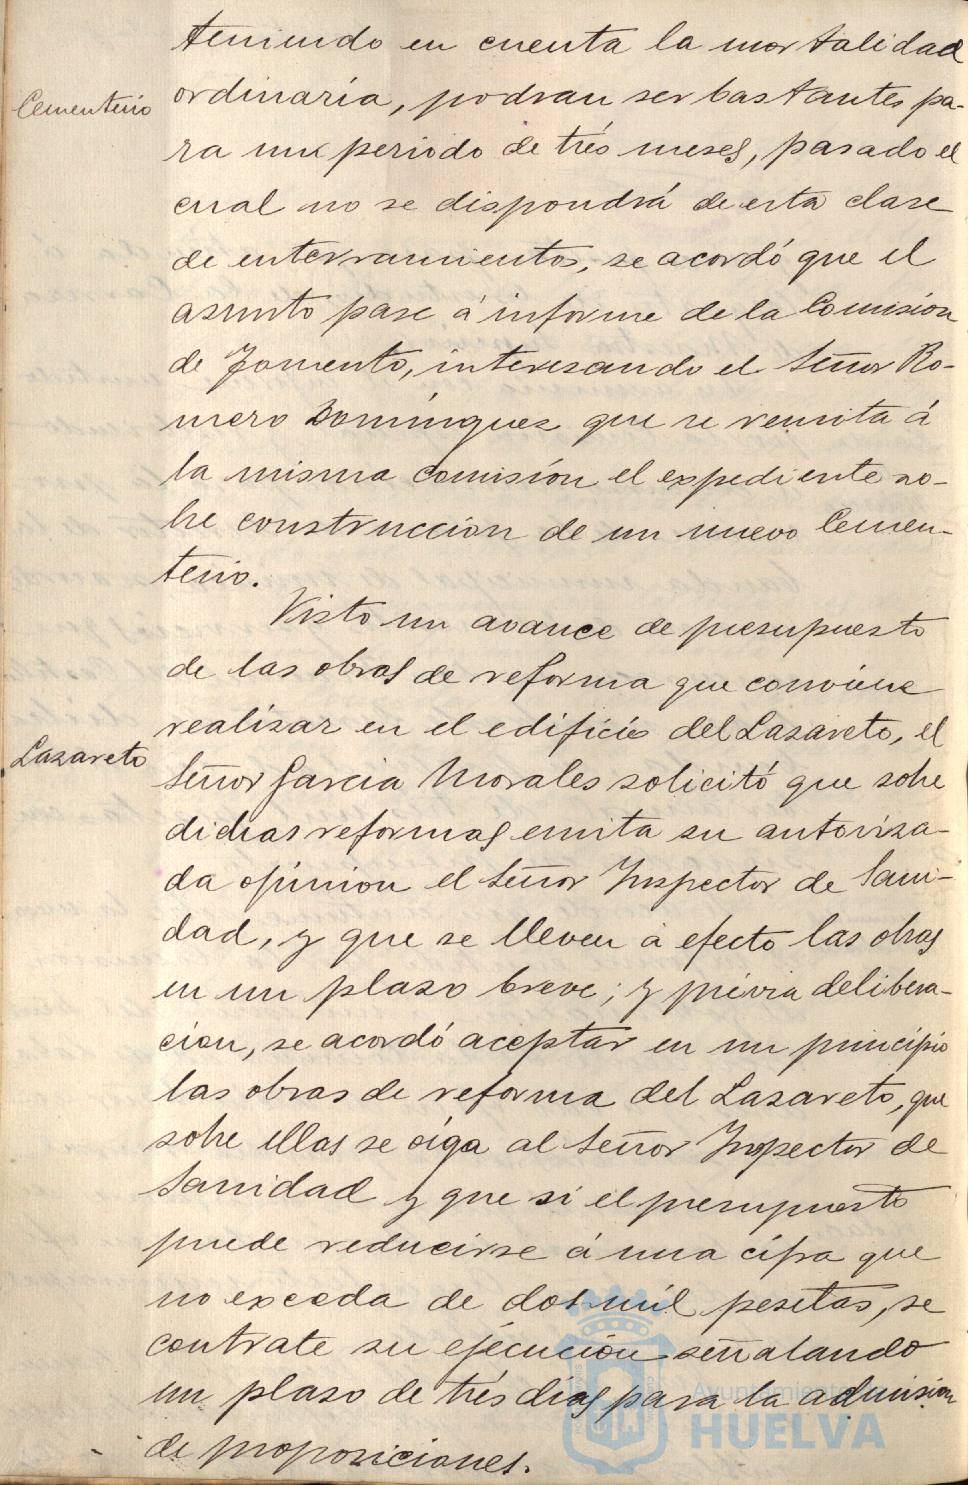 teniendo en cuenta la mortalidad
Cementerio
ordinaria, podran ser bastantes pa-
ra un periodo de trés meses, pasado el
cual no se dispondrá de esta clase
de enterramientos, se acordó que el
asunto pase á informe de la Comision
de Fomento, interesando el Señor Ro-
mero Domínguez que se remita á
la misma comisión el expediente so-
bre construccion de un nuevo Cemen-
terio.
Visto un avance de presupuesto
de las obras de reforma que conviene
realizar en el edificio del Lazareto, el
Lazareto
Señor Garcia Morales solicitó que sobre
dichas reformas emita su autoriza-
da opinion el Señor Inspector de Sani-
dad, y que se lleven á efecto las obras
en un plazo breve; y prévia delibera-
cion, se acordó aceptar en un principio
las obras de reforma del Lazareto, que
sobre ellas se oiga al Señor Inspector de
Sanidad y que si el presupuesto
puede reducirse á una cifra que
no exceda de dos mil pesetas, se
contrate su ejecución señalando
un plazo de trés dias para la admision
de proposiciones.
Ayuntamiento
HUELVA